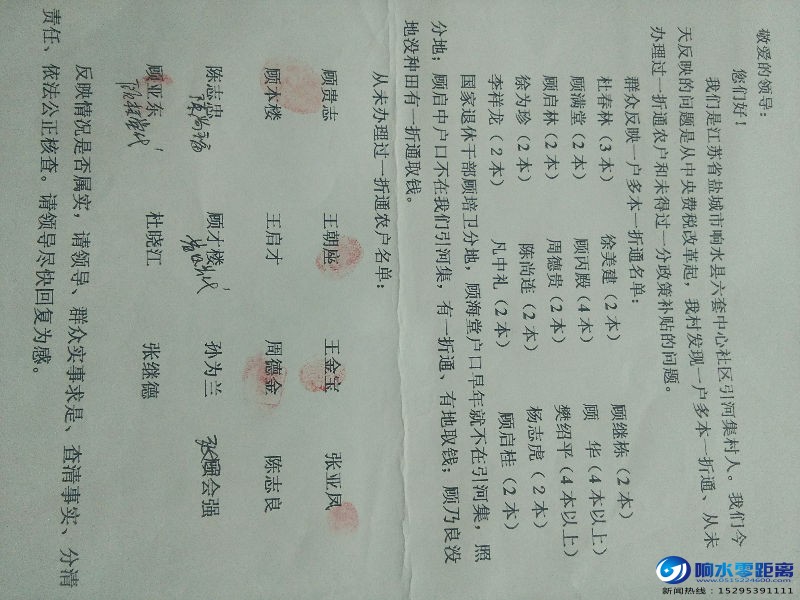 敬爱的领导:
您们好!
我们是江苏省盐城市响水县六套中心社区引河集村人。我们今
天反映的问题是从中央费税改革起,我村发现一户多本一折通、从未
办理过一折通农户和未得过一分政策补贴的问题。
群众反映一户多本一折通名单:
杜春林(3本) 徐美建(2本) 顾继栋(2本)
顾满堂(2本) 顾丙殿(4本) 顾 华(4本以上)
顾启林(2本) 周德贵(2本) 樊绍平(4本以上)
徐为珍(2本) 陈尚连(2本) 杨志虎(2本)
李祥龙(2本) 凡中礼(2本) 顾启桂(2本)
国家退休干部顾培卫分地,顾海堂户口早年就不在引河集,照
分地;顾启中户口不在我们引河集,有一折通、有地取钱;顾乃良没
地没种田有一折通取钱。
从未办理过一折通农户名单:
顾贵志 王朝座 王金宝 张亚凤
顾本楼 王启才 周德金 陈志良
陈志忠 顾才楼 孙为兰 张会强
顾亚东 杜晓江 张继德
反映情况是否属实,请领导、群众实事求是、查清事实、分清
责任、依法公正核查。请领导尽快回复为感。
响水零距离
www.0515224600.com
新闻热线:15295391111